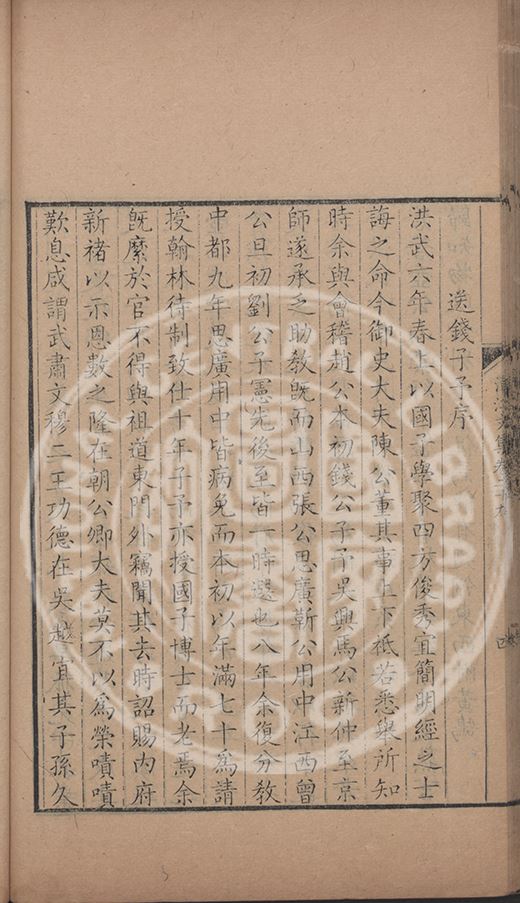 送錢子予序
洪武六年春上以國子學聚四方俊秀宜簡明經之士
誨之命今御史大夫陳公董其事上下祗若悉舉所知
時余與會稽趙公本初錢公子予吳興馬公新仲至京
師遂承之助敎旣而山西張公思廣靳公用中江西曾
公旦初劉公子憲先後至皆一時選也八年余復分敎
中都九年思廣用中皆病免而本初以年滿七十爲請
授翰林待制致仕十年子予亦授國子博士而老焉余
旣縻於官不得與祖道東門外竊聞其去時詔賜內府
新褚以示恩數之隆在朝公卿大夫莫不以爲榮嘖嘖
歎息咸謂武肅文穆二王功德在吳越宜其子孫久